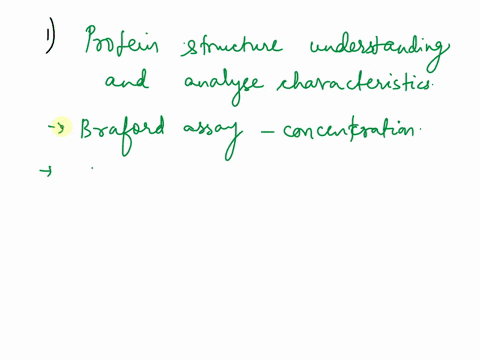 1) Protein structure understanding
and analyse characteristics.
→ Braford assay - concentration.
→